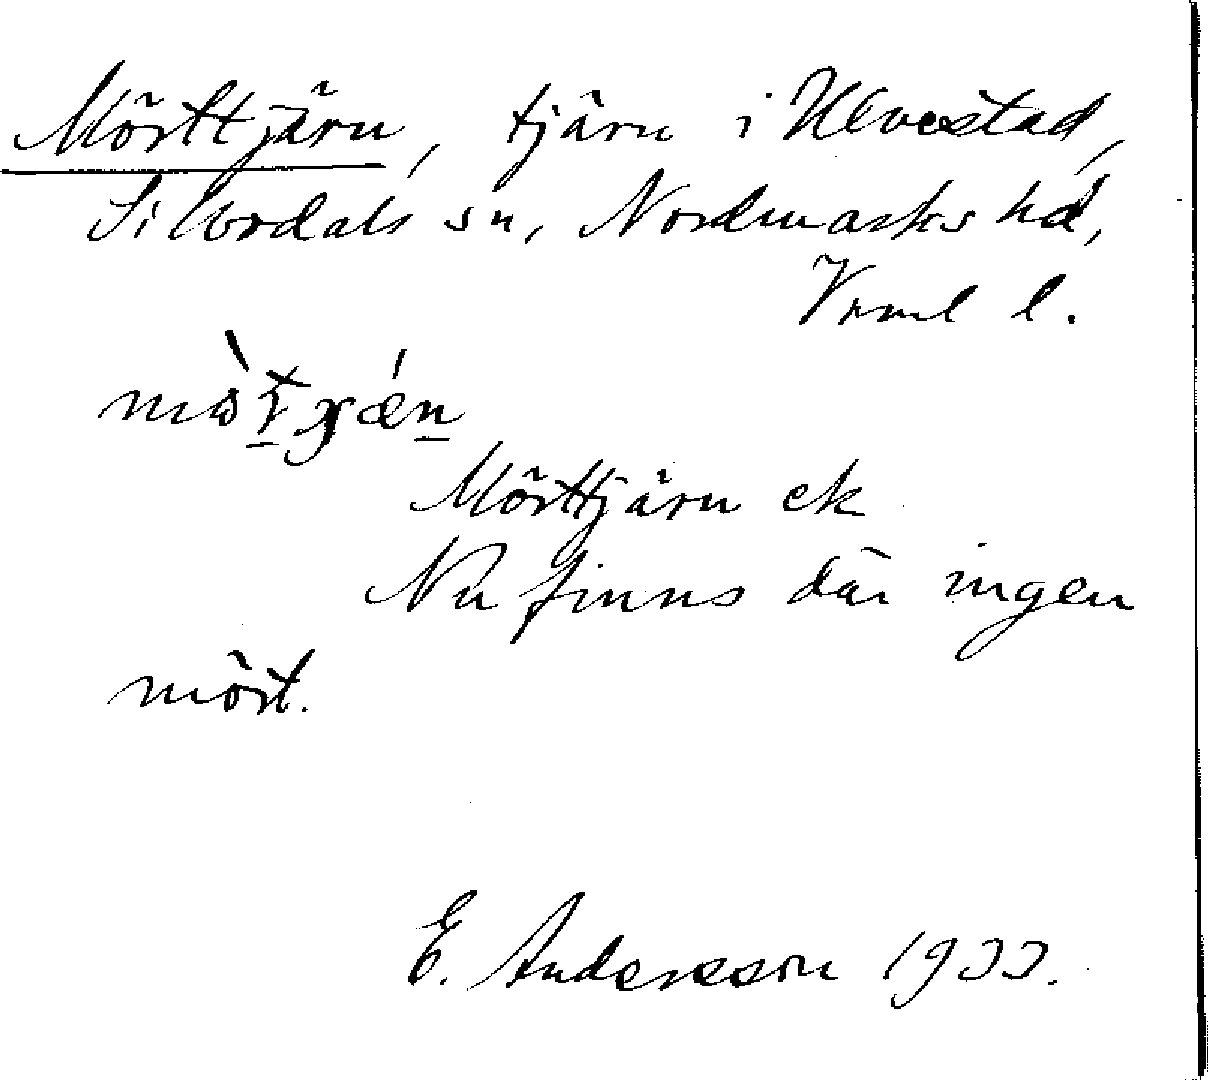 Mörttjärn, tjärn i Ulvestad,
Silbodals sn, Nordmarks hd,
Vrml l.
Mörttjärn ek
Nu finns där ingen
mört.
E. Andersson 1933.